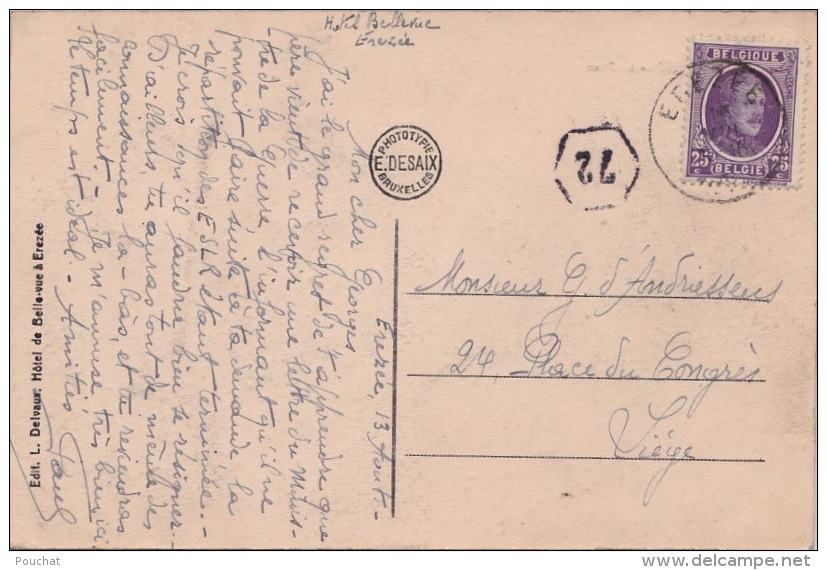 Hotel Bellevue
Erezée
Erezée, 13 Août -
Mon cher Georges
J'ai le grand regret de t'apprendre que
père vient de recevoir une lettre du Minis-
tre de la Guerre l'informant qu'il ne
pouvait faire suite à ta demande la
répartition des ESLR étant terminée. -
Je crois qu'il faudra bien se résigner. -
D'ailleurs tu auras tout de même des
connaissances là-bas, et tu reviendras
facilement. Je m'amuse très bien ici
le temps est idéal - Amitiés
Paul
Edit. L. Delvaux, Hôtel de Belle-vue à Erezée
PHOTOTYPIE
E. DESAIX
BRUXELLES
72
EREZEE
BELGIQUE
25c 25c
BELGIE
Monsieur G d'Andriessens
24, Place du Congrès
Liège
© Pouchat
delcampe.net